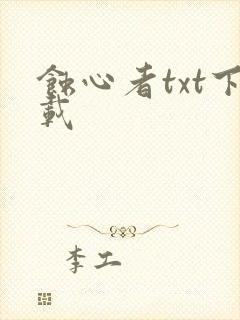 蚀心者txt下
载
李工